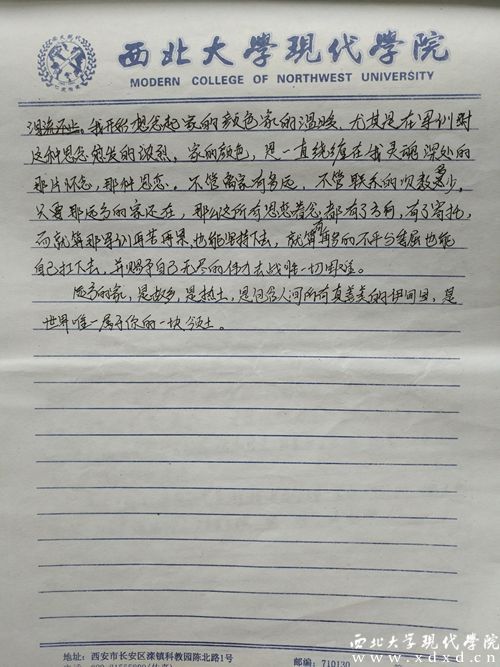 西北大学现代学院
MODERN COLLEGE OF NORTHWEST UNIVERSITY
流不止。我开始想念起家的颜色家的温暖，尤其是在军训时
这种思念愈发的浓烈。家的颜色，是一直缠绕在我灵魂深处的
那片怀念，那份思恋。不管离家有多远，不管联系的次数多少，
只要那远方的家还在，那么这所有思恋着念都有了方向，有了寄托，
而就算那军训再苦再累，也能坚持下去，就算有再多的不平与委屈也能
自己扛下去，并赐予自己无尽的伟力去战胜一切困难。
远方的家，是故乡，是热土，是包含人间所有真善美的桃园，是
世界唯一属于你的一块领土。
地址：西安市长安区滦镇科教园陈北路1号
邮编：710130
西北大学现代学院
www.xdxd.cn